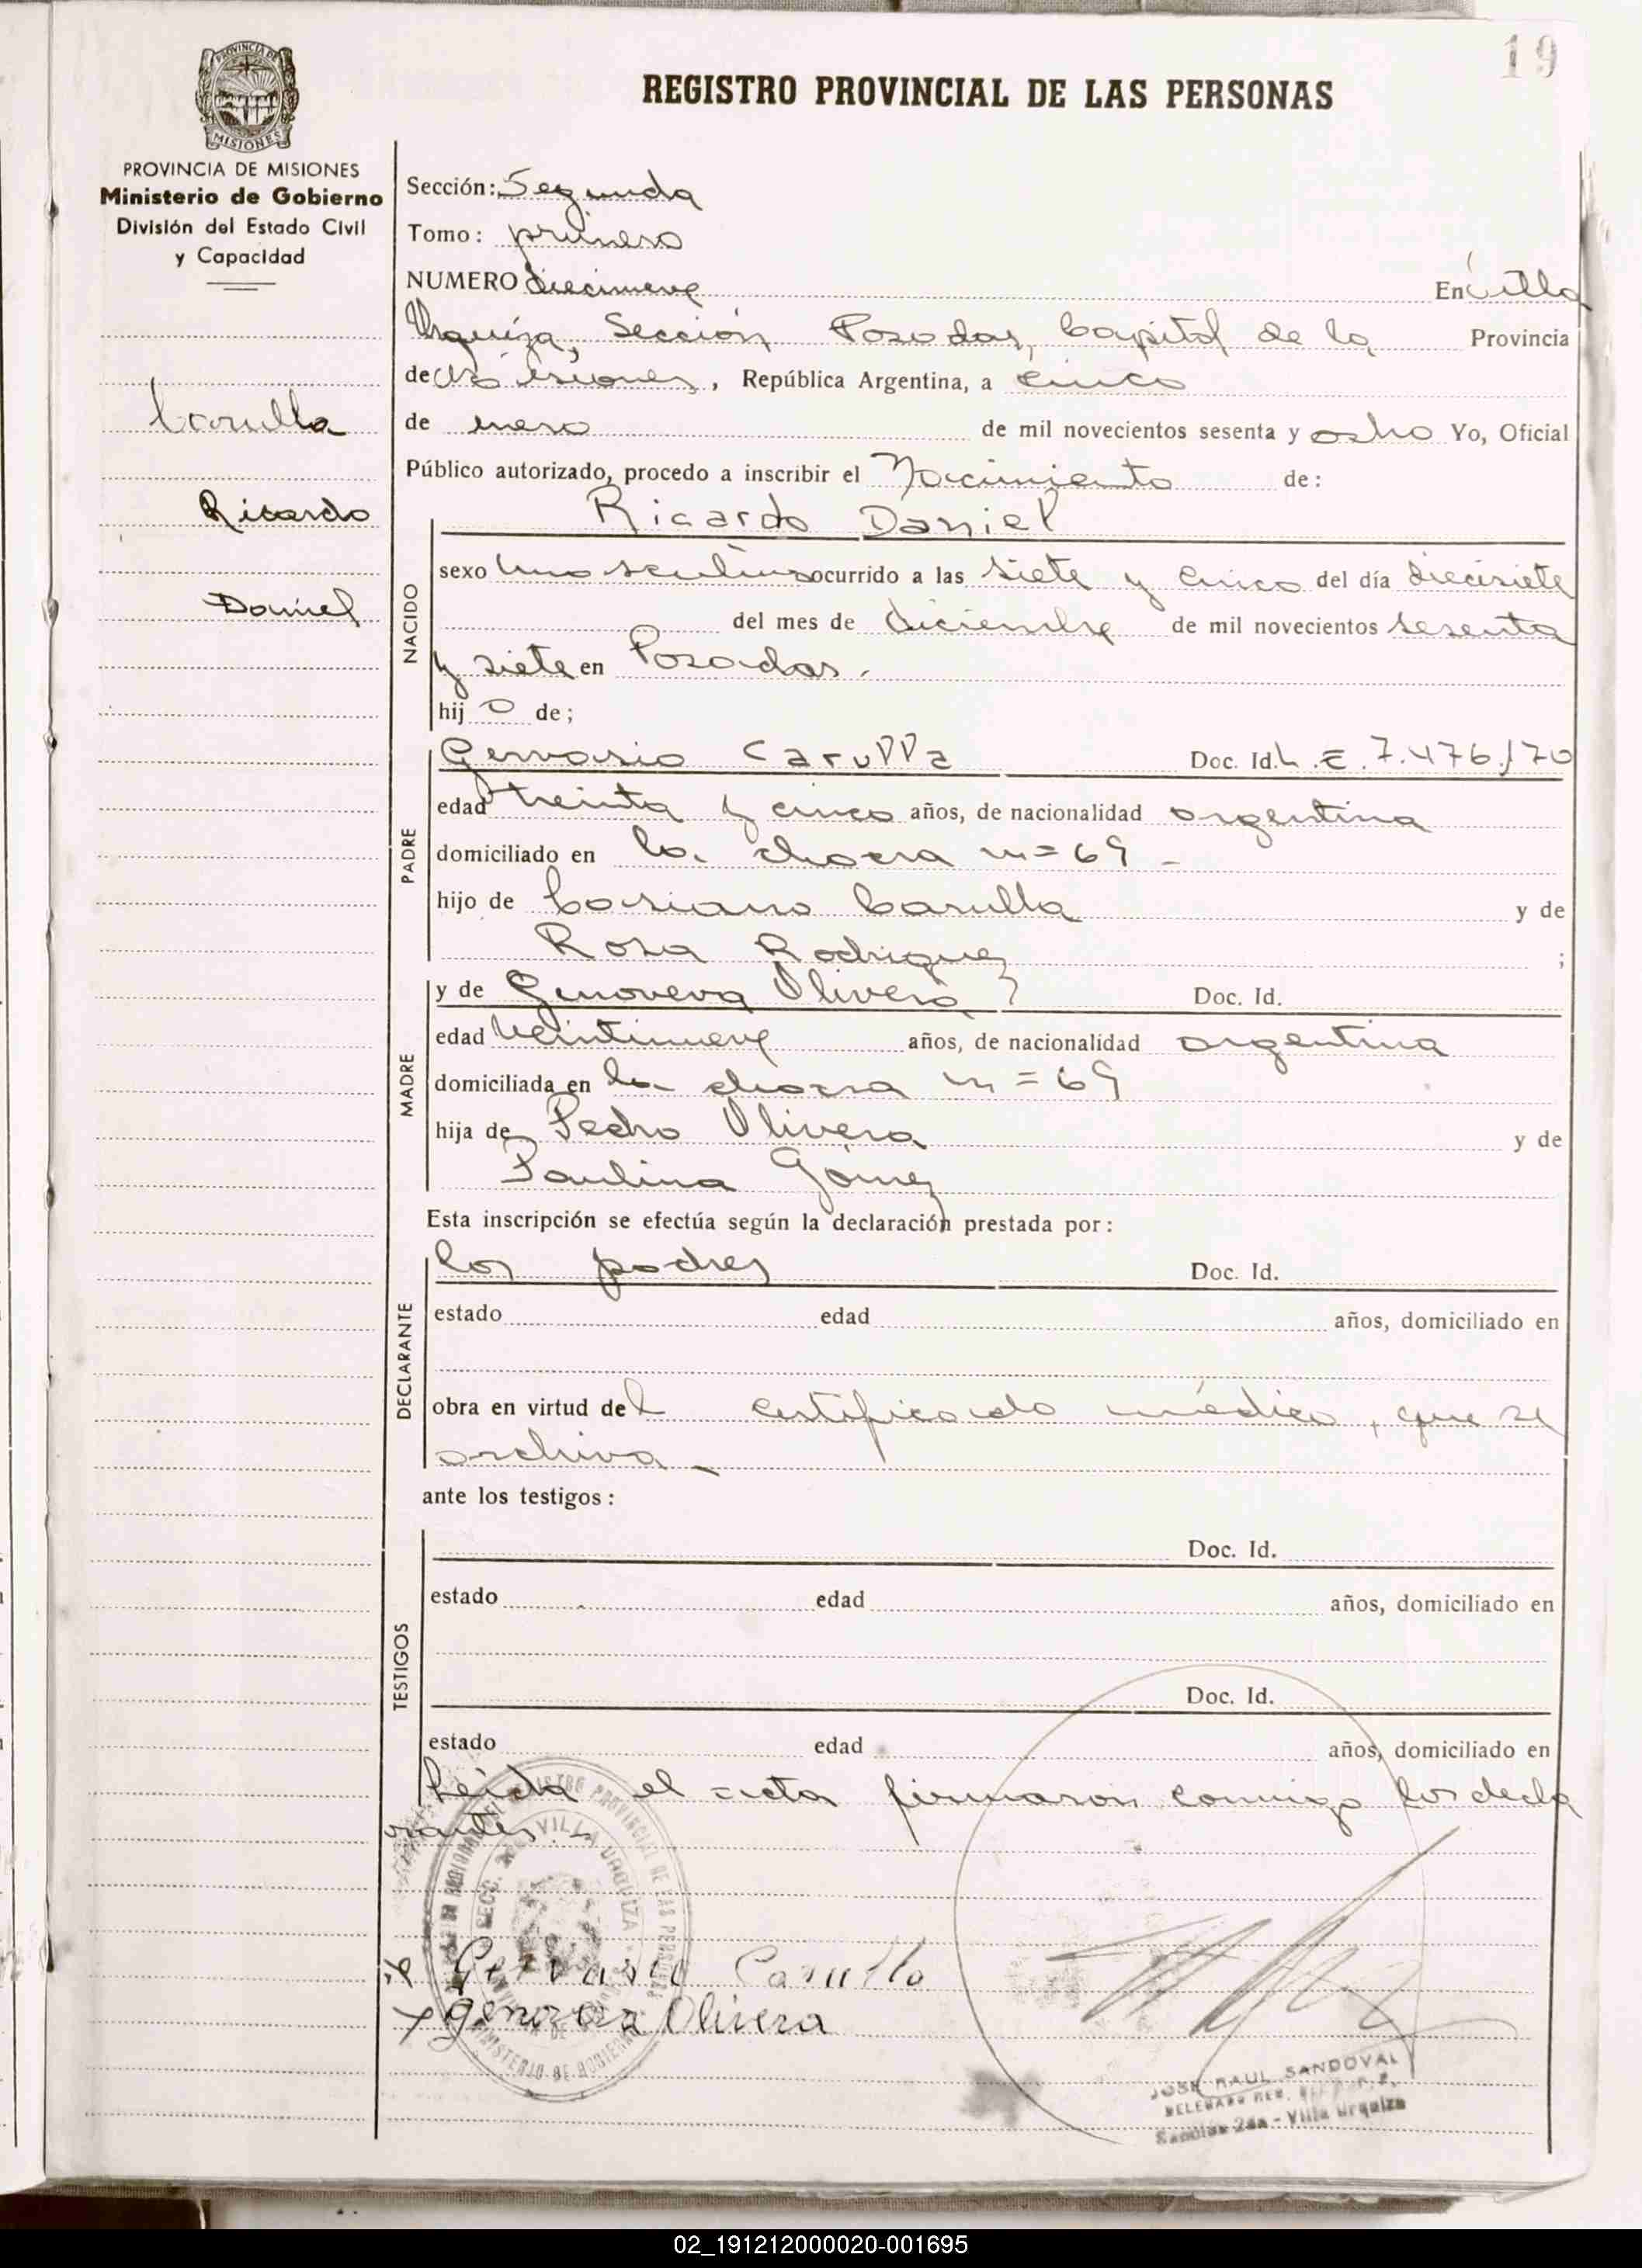 19
PROVINCIA DE
MISIONES
PROVINCIA DE MISIONES
Ministerio de Gobierno
División del Estado Civil
y Capacidad
Carulla
Ricardo
Daniel
REGISTRO PROVINCIAL DE LAS PERSONAS
Sección: Segunda
Tomo: primero
NUMERO diecinueve En Villa
Urquiza, Sección Posadas, Capital de la Provincia
de Misiones, República Argentina, a cinco
de enero de mil novecientos sesenta y ocho Yo, Oficial
Público autorizado, procedo a inscribir el Nacimiento de:
Ricardo Daniel
NACIDO
sexo masculino ocurrido a las siete y cinco del día diecisiete
del mes de diciembre de mil novecientos sesenta
y siete en Posadas.
hij o de;
PADRE
Gervasio Carulla Doc. Id. L.E. 7.476.170
edad treinta y cinco años, de nacionalidad argentina
domiciliado en la chacra n=69 -
hijo de Casiano Carulla y de
Rosa Rodriguez ;
MADRE
y de Genoveva Olivera Doc. Id.
edad veintinueve años, de nacionalidad argentina
domiciliada en la chacra n=69
hija de Pedro Olivera y de
Paulina Gómez
Esta inscripción se efectúa según la declaración prestada por:
DECLARANTE
los padres Doc. Id.
estado edad años, domiciliado en
obra en virtud del certificado médico, que se
archiva -
ante los testigos:
TESTIGOS
Doc. Id.
estado edad años, domiciliado en
Doc. Id.
estado edad años, domiciliado en
Leída el acta firmaron conmigo los decla
rantes.-
REGISTRO PROVINCIAL DE LAS PERSONAS
SECC. 2da VILLA URQUIZA
MINISTERIO DE GOBIERNO
x Gervasio Carulla
x genoveva Olivera
JOSE RAUL SANDOVAL
DELEGADO
Sección 2da - Villa Urquiza
02_191212000020-001695